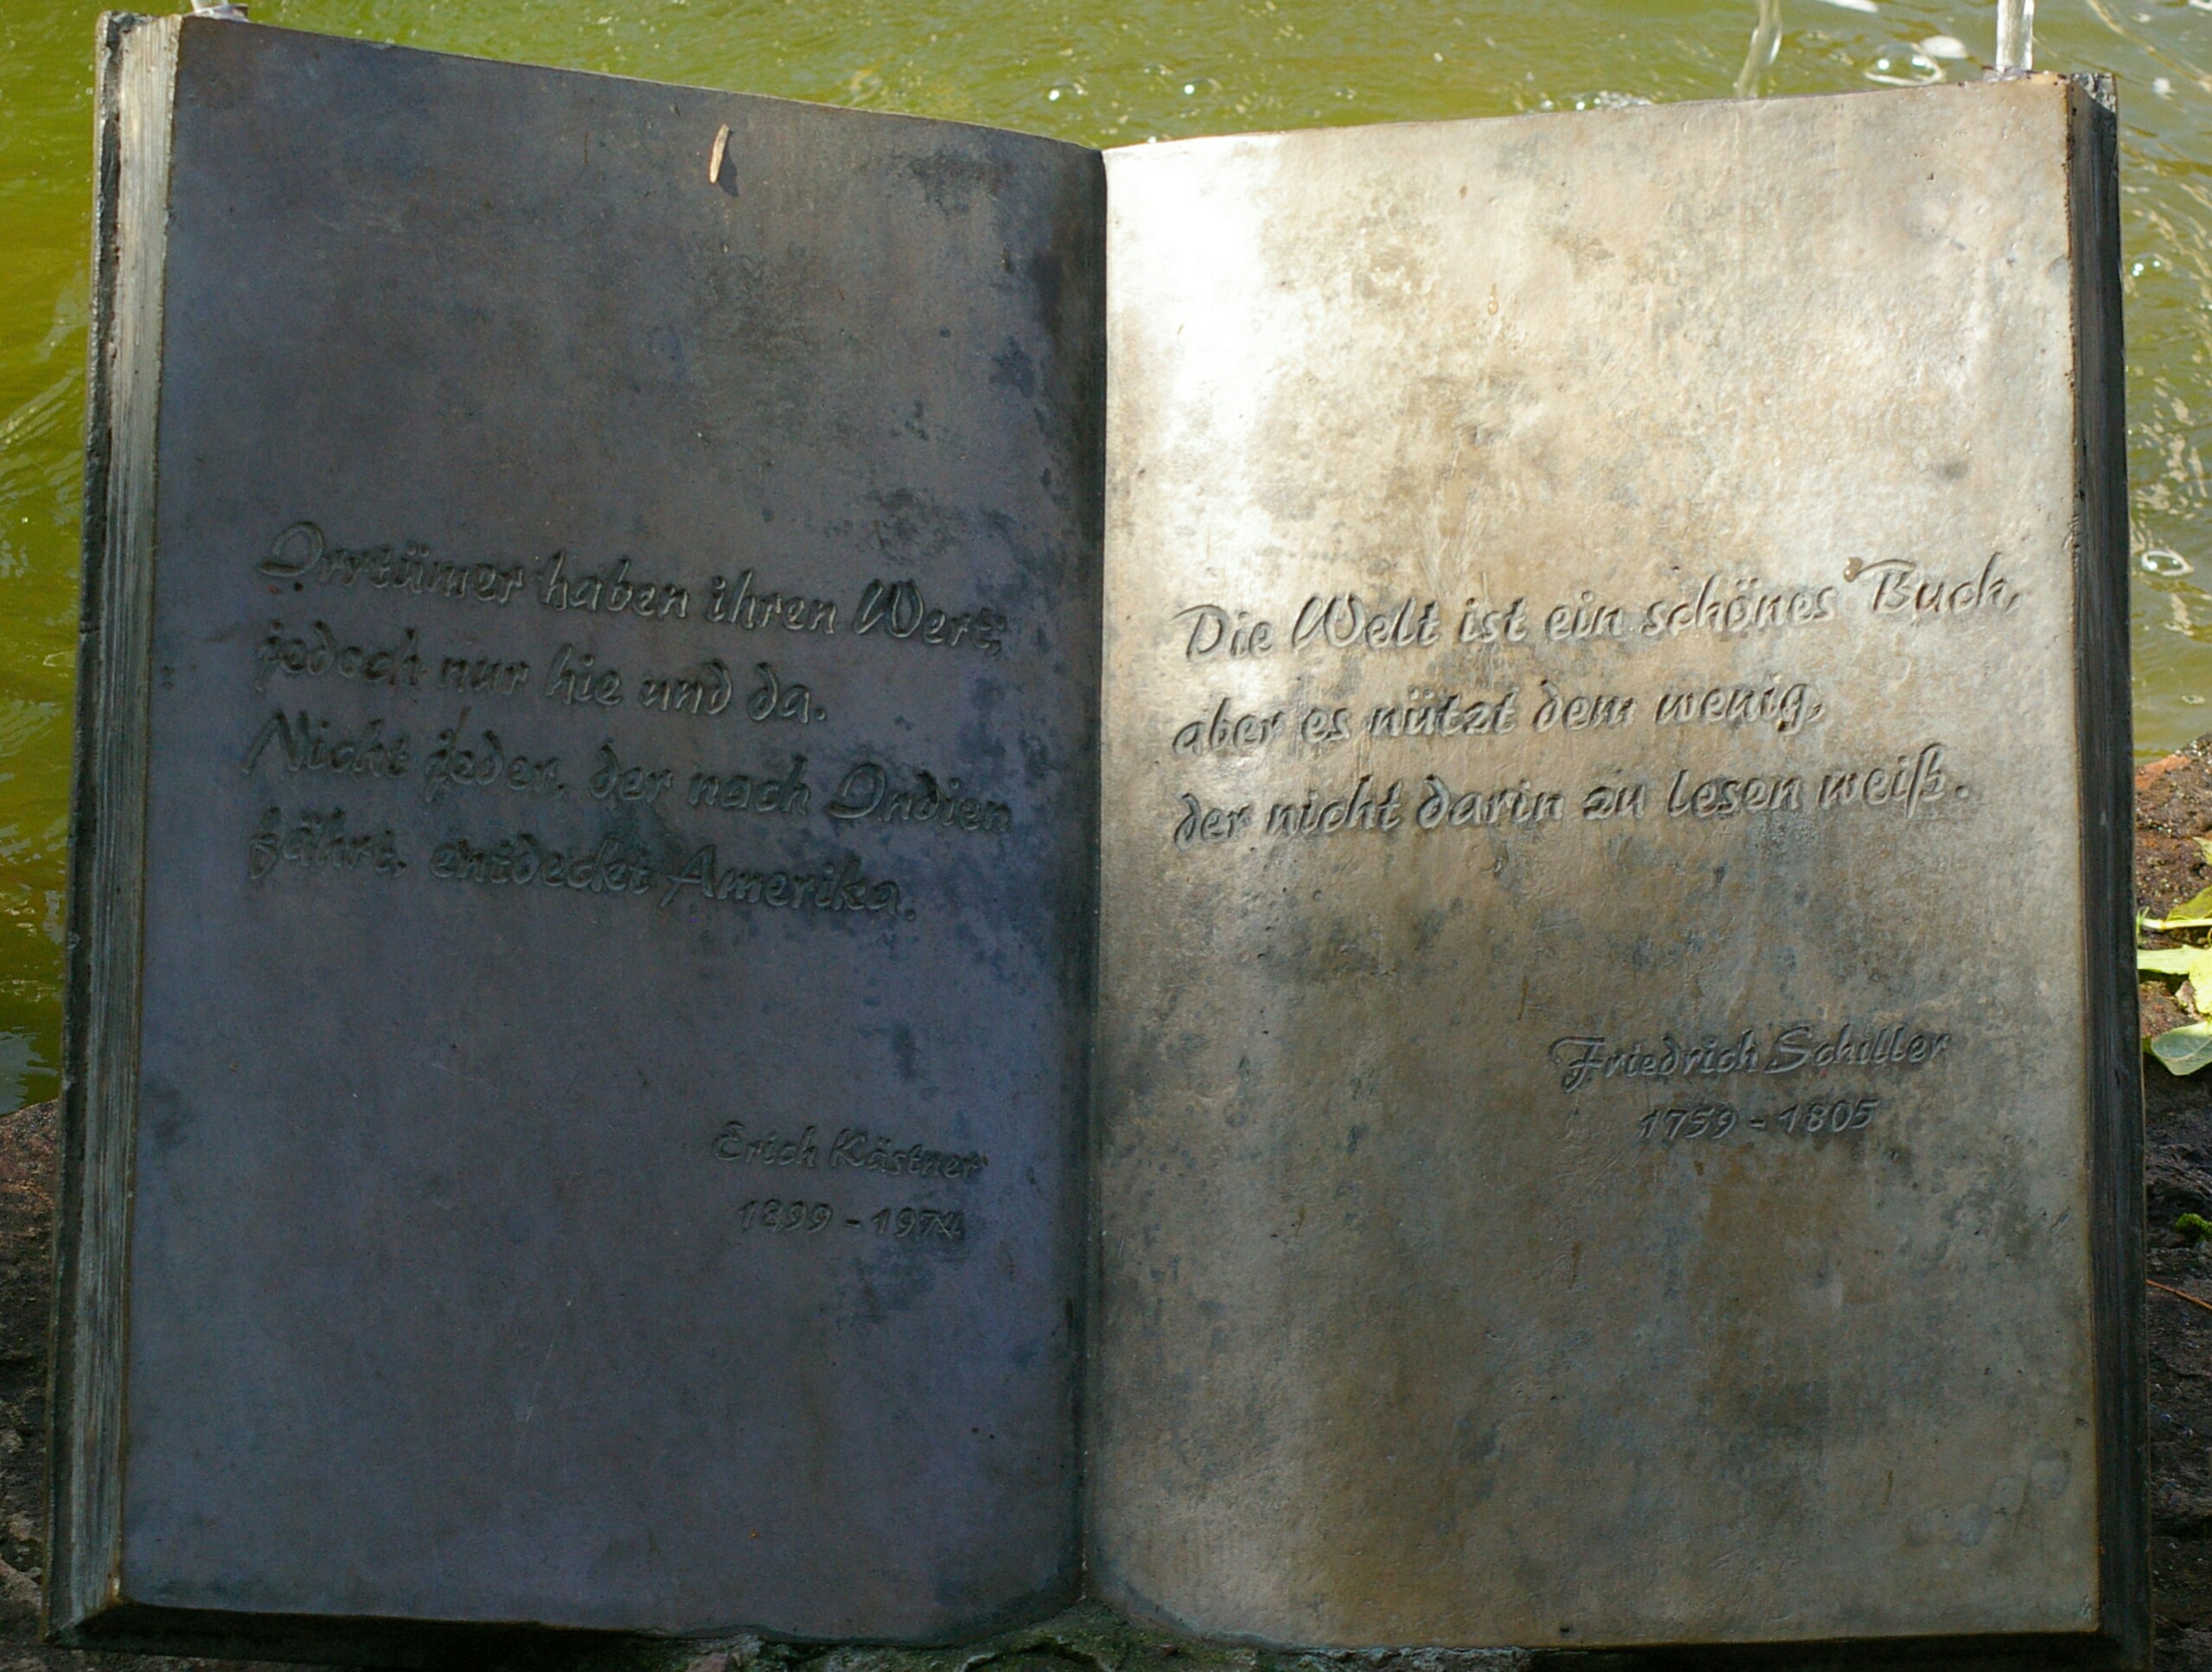 Irrtümer haben ihren Wert,
jedoch nur hie und da.
Nicht jeder, der nach Indien
fährt, entdeckt Amerika.
Erich Kästner
1899 - 1974
Die Welt ist ein schönes Buch,
aber es nützt dem wenig,
der nicht darin zu lesen weiß.
Friedrich Schiller
1759 - 1805